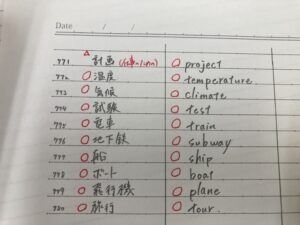 Date / /
771 計画 project
772 温度 temperature
773 気候 climate
774 試験 test
775 電車 train
776 地下鉄 subway
777 船 ship
778 ボート boat
779 飛行機 plane
780 旅行 tour.